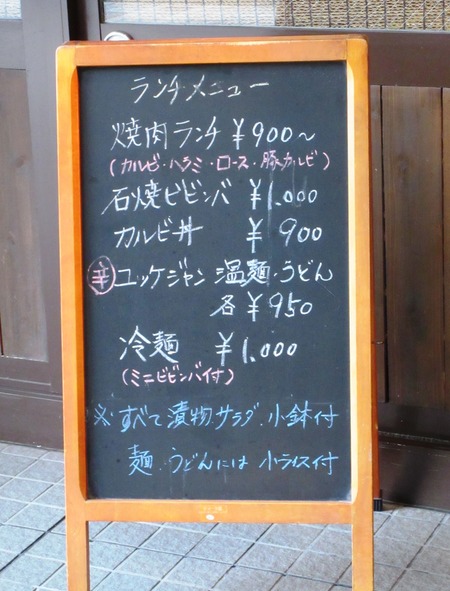 ランチメニュー
焼肉ランチ ¥900〜
(カルビ・ハラミ・ロース・豚カルビ)
石焼ビビンバ ¥1.000
カルビ丼 ¥900
辛 ユッケジャン 温麺・うどん
各 ¥950
冷麺 ¥1.000
(ミニビビンバ付)
※すべて漬物.サラダ.小鉢付
麺.うどんには小ライス付